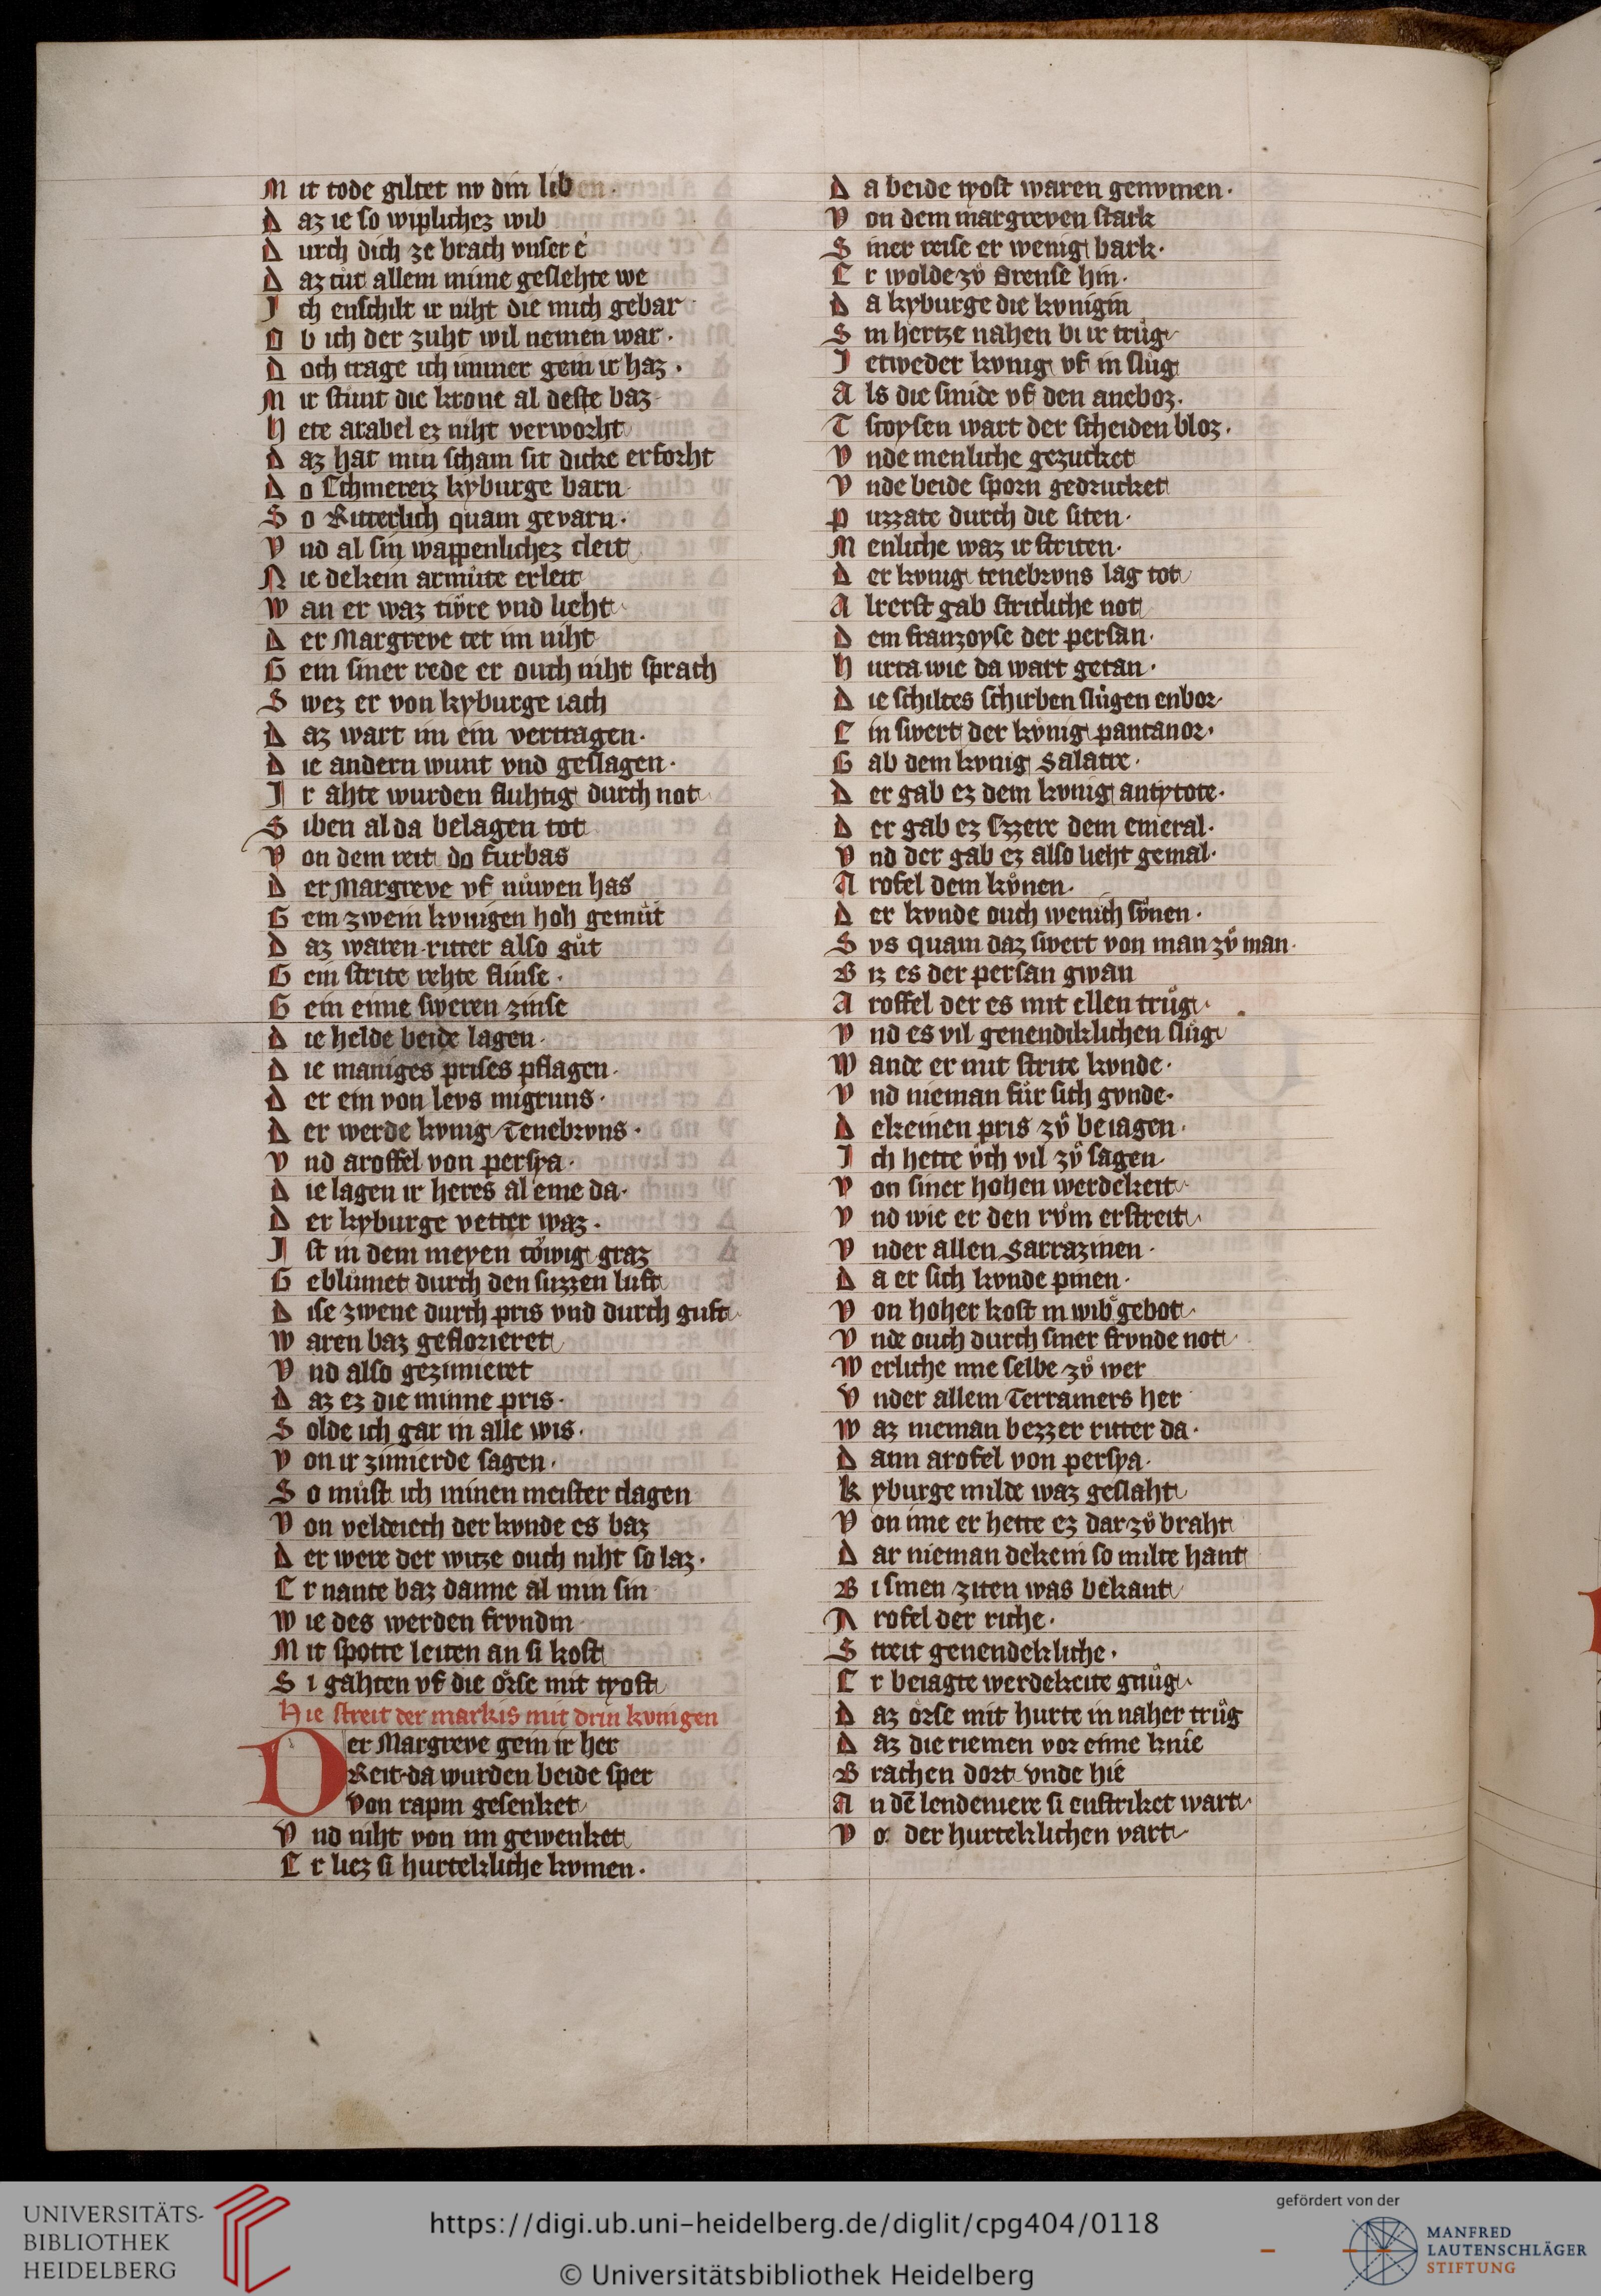 M it tode giltet nv din lib
D az ie so wiplichez wib
D urch dich ze brach vnser é
D az tůt allem mime geslehte we
I ch enschilt ir niht die mich gebar
O b ich der zuht wil nemen war.
D och trage ich immer gein ir haz.
M ir stůnt die krone al deste baz
H ete arabel ez niht verworht
D az hat min scham sit dicke erforht
D o Ehmereiz kyburge barn
S o Ritterlich quam gevarn.
V nd al sin wappenlichez cleit
N ie dekein armůte erleit
W an er waz tivre vnd lieht
D er Margreve tet im niht
G ein siner rede er ouch niht sprach
S wez er von kyburge iach
D az wart im ein vertragen.
D ie andern wunt vnd geslagen.
I r ahte wurden fluhtig durch not
S iben al da belagen tot
V on dem reit do furbas
D er Margreve vf nůwen has
G ein zwein kvnigen hoh gemůt
D az waren ritter also gůt
G ein strite rehte flinse.
G ein eime sweren zinse
D ie helde beide lagen.
D ie maniges prises pflagen.
D er ein von levs nugruns.
D er werde kvnig Tenebrvns.
V nd aroffel von persya.
D ie lagen ir heres al eine da.
D er kyburge vetter waz.
I st in dem meyen tǒwig graz
G eblůmet durch den suzzen luft
D ise zwene durch pris vnd durch guft
W aren baz geflorieret
V nd also gezimieret
D az ez die minne pris.
S olde ich gar in alle wis.
V on ir zimierde sagen.
S o můst ich minen meister clagen
V on veldeich der kvnde es baz
D er were der witze ouch niht so laz.
E r nante baz danne al min sin
W ie des werden frvndin
M it spotte leiten an si kost
S i gahten vf die ǒrse mit tyost
Hie streit der markis mit drin kvnigen
Der Margreve gein ir her
Reit da wurden beide sper
Von rapin gesenket
V nd niht von im gewenket
E r liez si hurtekliche kvmen.
D a beide tyost waren genvmen.
V on dem margreven stark
S iner reise er wenig bark.
E r wolde zů Orense hin.
D a kyburge die kvnigin
S in hertze nahen bi ir trůg
I etweder kvnig vf in slůg
A ls die smide vf den aneboz.
T scoysen wart der scheiden bloz.
V nde menliche gezucket
V nde beide sporn gedrucket
P uzzate durch die siten.
M enliche waz ir striten.
D er kvnig tenebrvns lag tot
A lrerst gab stritliche not
D em franzoyse der persan.
H urta wie da wart getan.
D ie schiltes schirben flůgen enbor
E in swert der kv́nig pantanor.
G ab dem kvnig Salatre.
D er gab ez dem kvnig antytote.
D er gab ez Ezzere dem emeral.
V nd der gab ez also lieht gemal.
A rofel dem kůnen.
D er kvnde ouch wenich sv̊nen.
S vs quam daz swert von man zů man.
B iz es der persan gwan
A roffel der es mit ellen trůg
V nd es vil genendiklichen slůg
W ande er mit strite kvnde.
V nd nieman fůr sich gvnde.
D ekeinen pris zů beiagen.
I ch hette v̊ch vil zů sagen
V on siner hohen werdekeit
V nd wie er den rv̊m erstreit
V nder allen Sarrazinen.
D a er sich kvnde pinen.
V on hoher kost in wib gebot
V nde ouch durch siner frvnde not
W erliche ime selbe zů wer
V nder allem Terramers her
W az nieman bezzer ritter da.
D ann arofel von persya.
K yburge milde waz geslaht
V on ime er hette ez dar zů braht
D ar nieman dekein so milte hant
B i sinen ziten was bekant
A rofel der riche.
S treit genendekliche.
E r beiagte werdekeite gnůg
D az ǒrse mit hurte in naher trůg
D az die riemen vor eime knie
B rachen dort vnde hie
A n dē lendeniere si enstriket wart
V o: der hurteklichen vart
UNIVERSITÄTS-
BIBLIOTHEK
HEIDELBERG
https://digi.ub.uni-heidelberg.de/diglit/cpg404/0118
© Universitätsbibliothek Heidelberg
gefördert von der
MANFRED
LAUTENSCHLÄGER
STIFTUNG